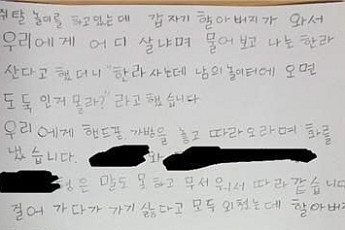 쥐탈 놀이를 하고있는데 갑자기 할아버지가 와서
우리에게 어디 살냐며 물어보고 나는 한라
산다고 했더니 "한라 사는데 남의 놀이터에 오면
도둑인거 몰라?" 라고 했습니다
우리에게 핸드폰 가방을 놓고 따라오라며 화를
냈습니다. 와
형은 말도 못하고 무서워서 따라갔습니다
걸어가다가 가기 싫다고 모두 외쳤는데 할아버